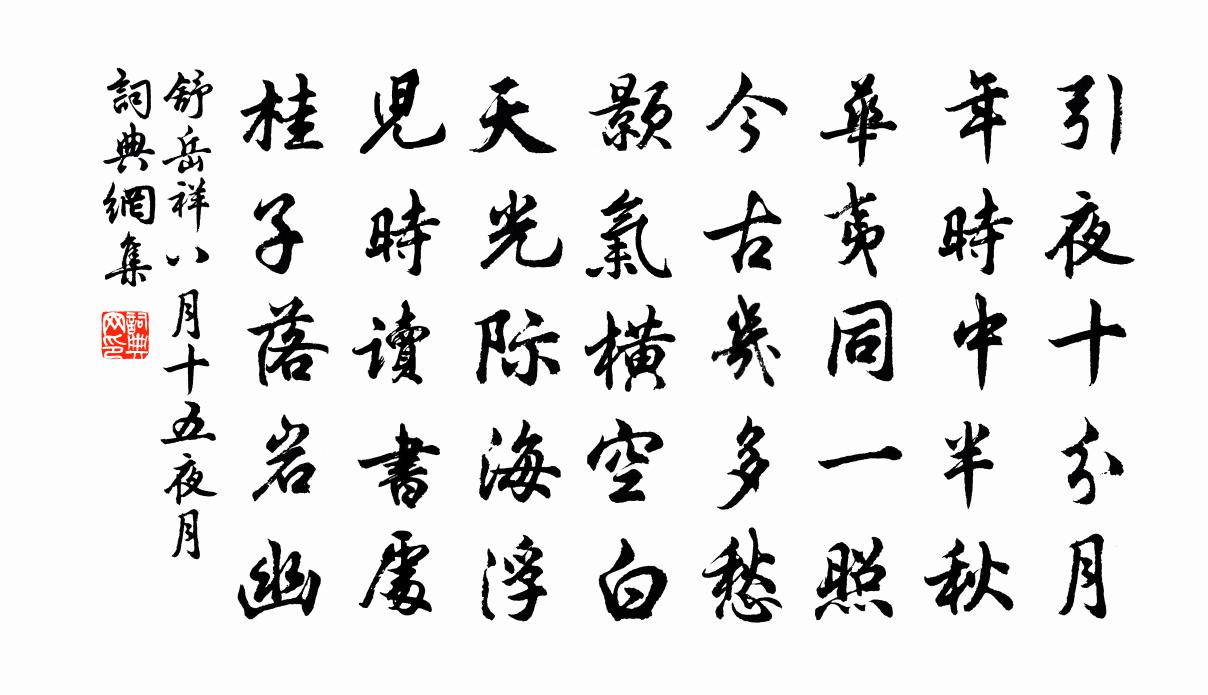 引夜十分月
年時中半秋
華夷同一照
今古幾多愁
顥氣橫空白
天光际海浮
兒時讀書處
桂子落岩幽
舒岳祥八月十五夜月
詞典網集
詞典网印